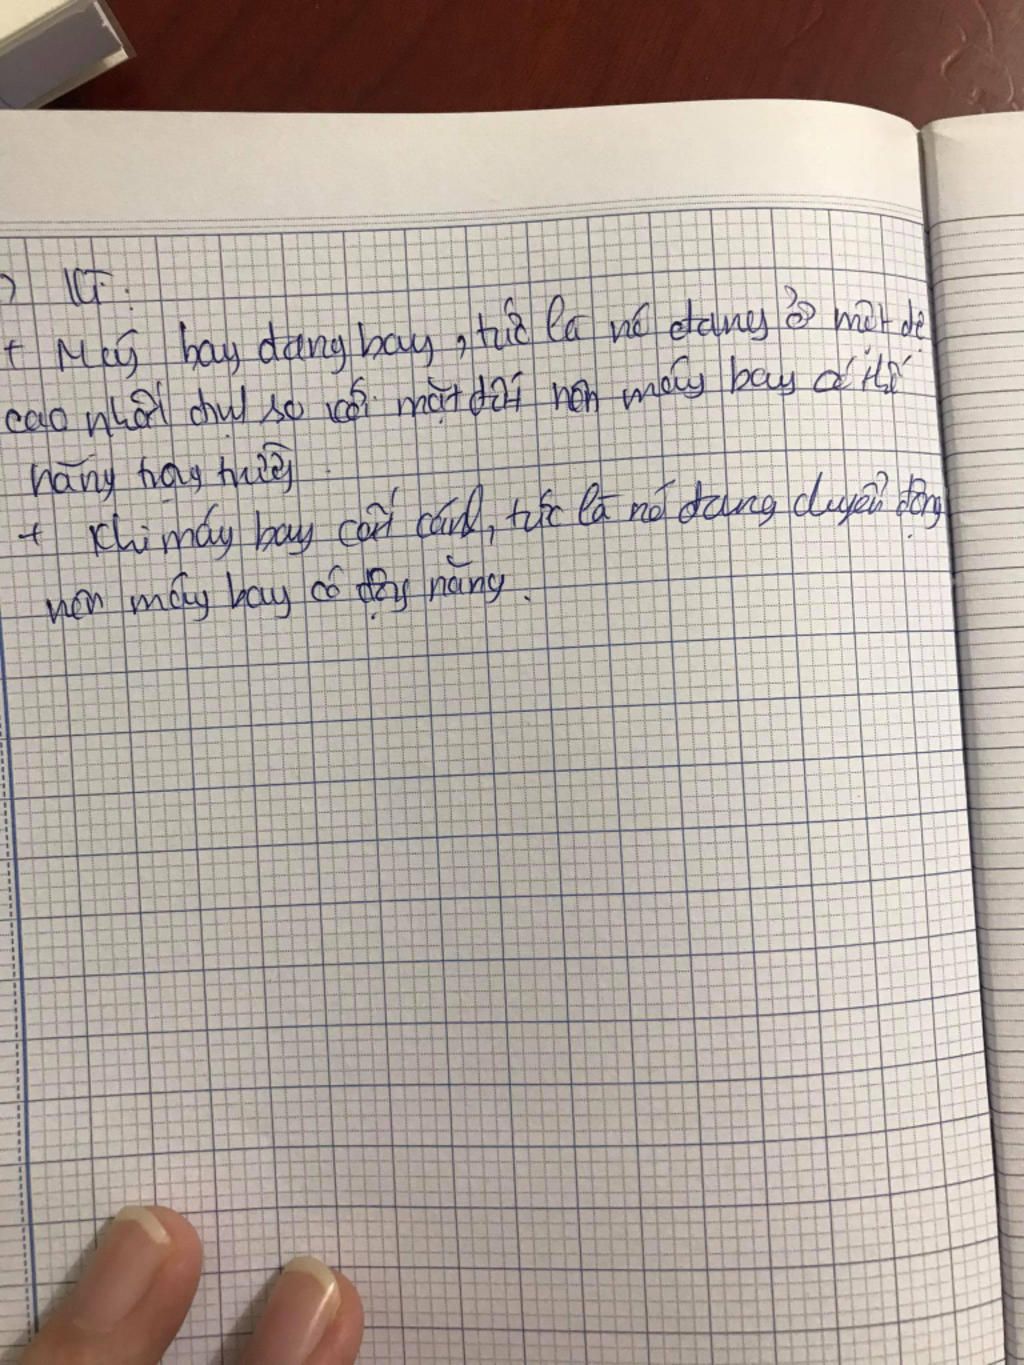 KL:
+ Máy bay đang bay, tức là nó đang ở một độ
cao nhất định so với mặt đất nên máy bay có thế
năng trọng trường
+ Khi máy bay cất cánh, tức là nó đang chuyển động
nên máy bay có động năng.